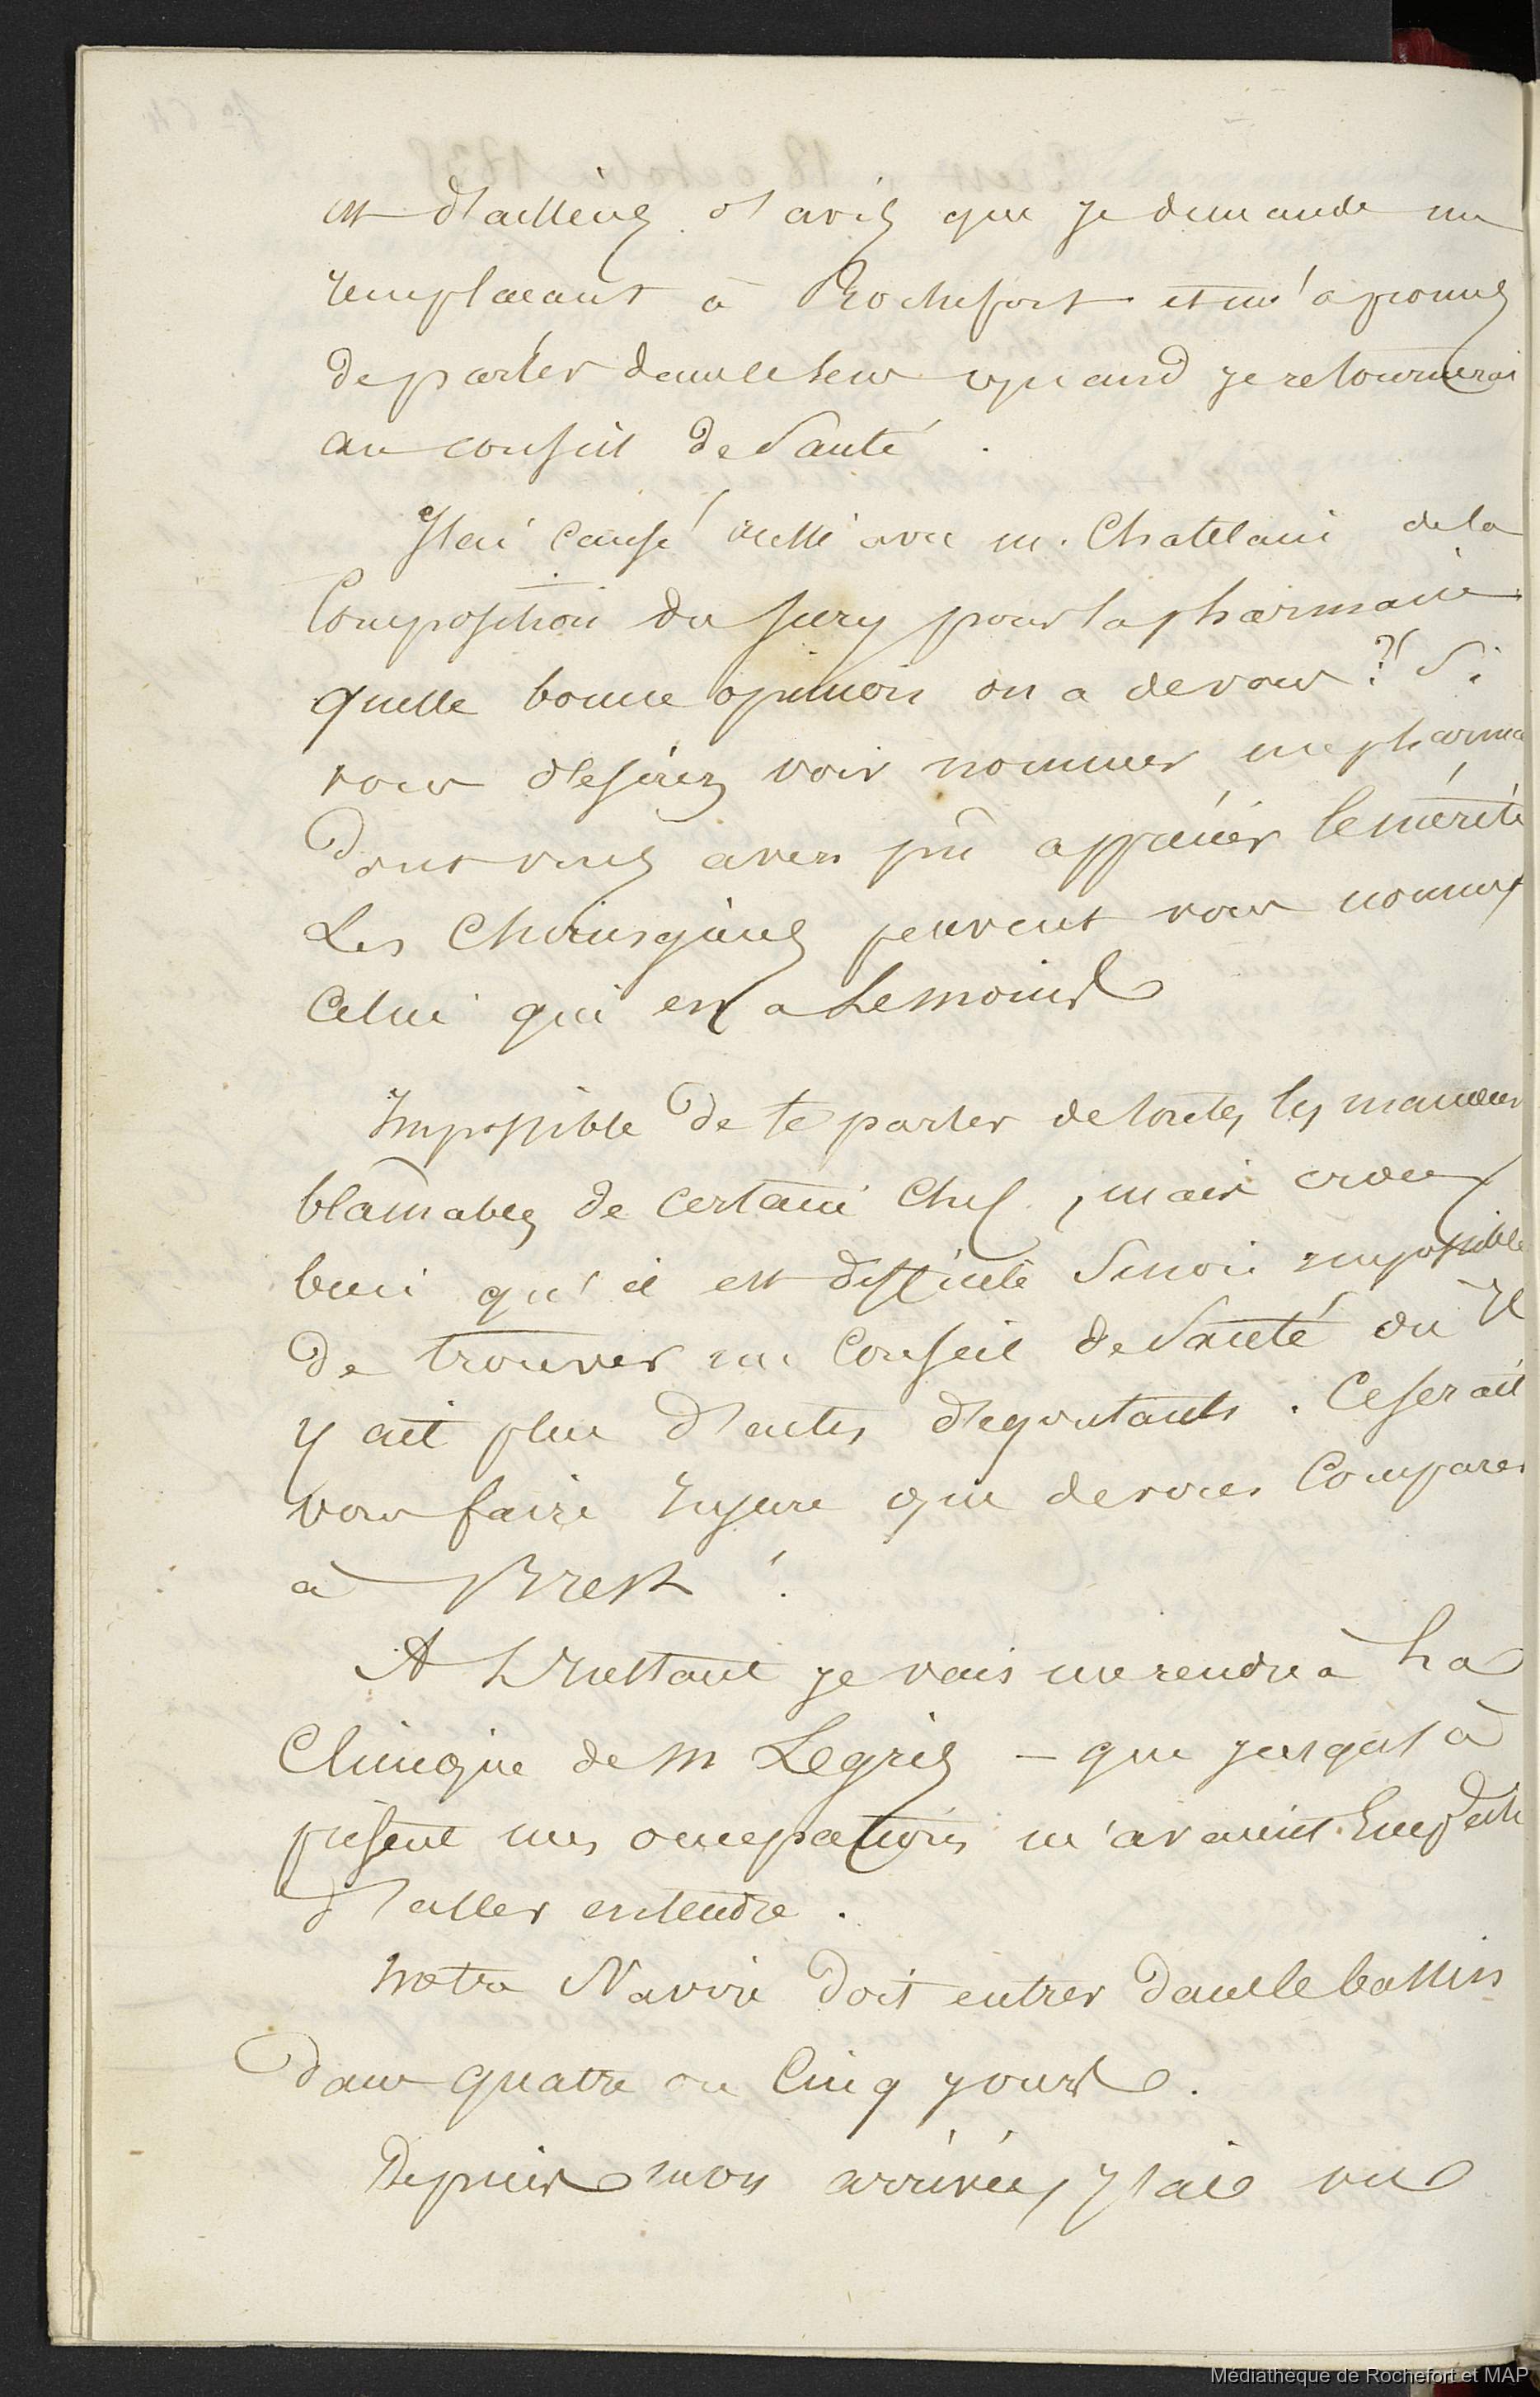 est d'ailleurs d'avis que je demande un
remplacant à Rochefort et m'a promis
de parler dans ce sens quand je retournerai
au conseil de Santé.
J'ai causé aussi avec m. Chatelain de la
Composition du Jury pour la pharmacie
quelle bonne opinion on a de vous ? Si
vous desirez voir nommer un pharma
dont vous avez pû apprécier le mérite
Les chirurgiens peuvent vous nommer
celui qui en a le moins
Impossible de te parler de toutes les manoeuv
blâmables de certain chef, mais crois
bien qu'il est difficile sinon impossible
de trouver un Conseil de Santé ou Il
y ait plus d'actes degoutants. Ce serait
vous faire Injure que de vous comparer
à Brest !
A L'Instant je vais me rendre à La
Clinique de M Legris — que jusqu'à
présent mes occupations m'avaient Empêché
d'aller entendre.
Notre Navire doit entrer dans le bassin
dans quatre ou Cinq jours.
Depuis mon arrivée, J'ai vu
Médiathèque de Rochefort et MAP